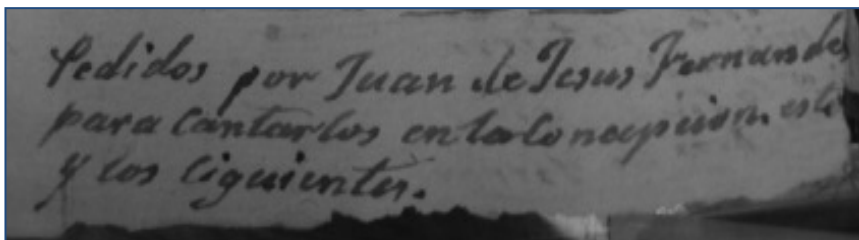 Pedidos por Juan de Jesus Fernandes
para cantarlos en la Concepcion. este
y los ciguientes.